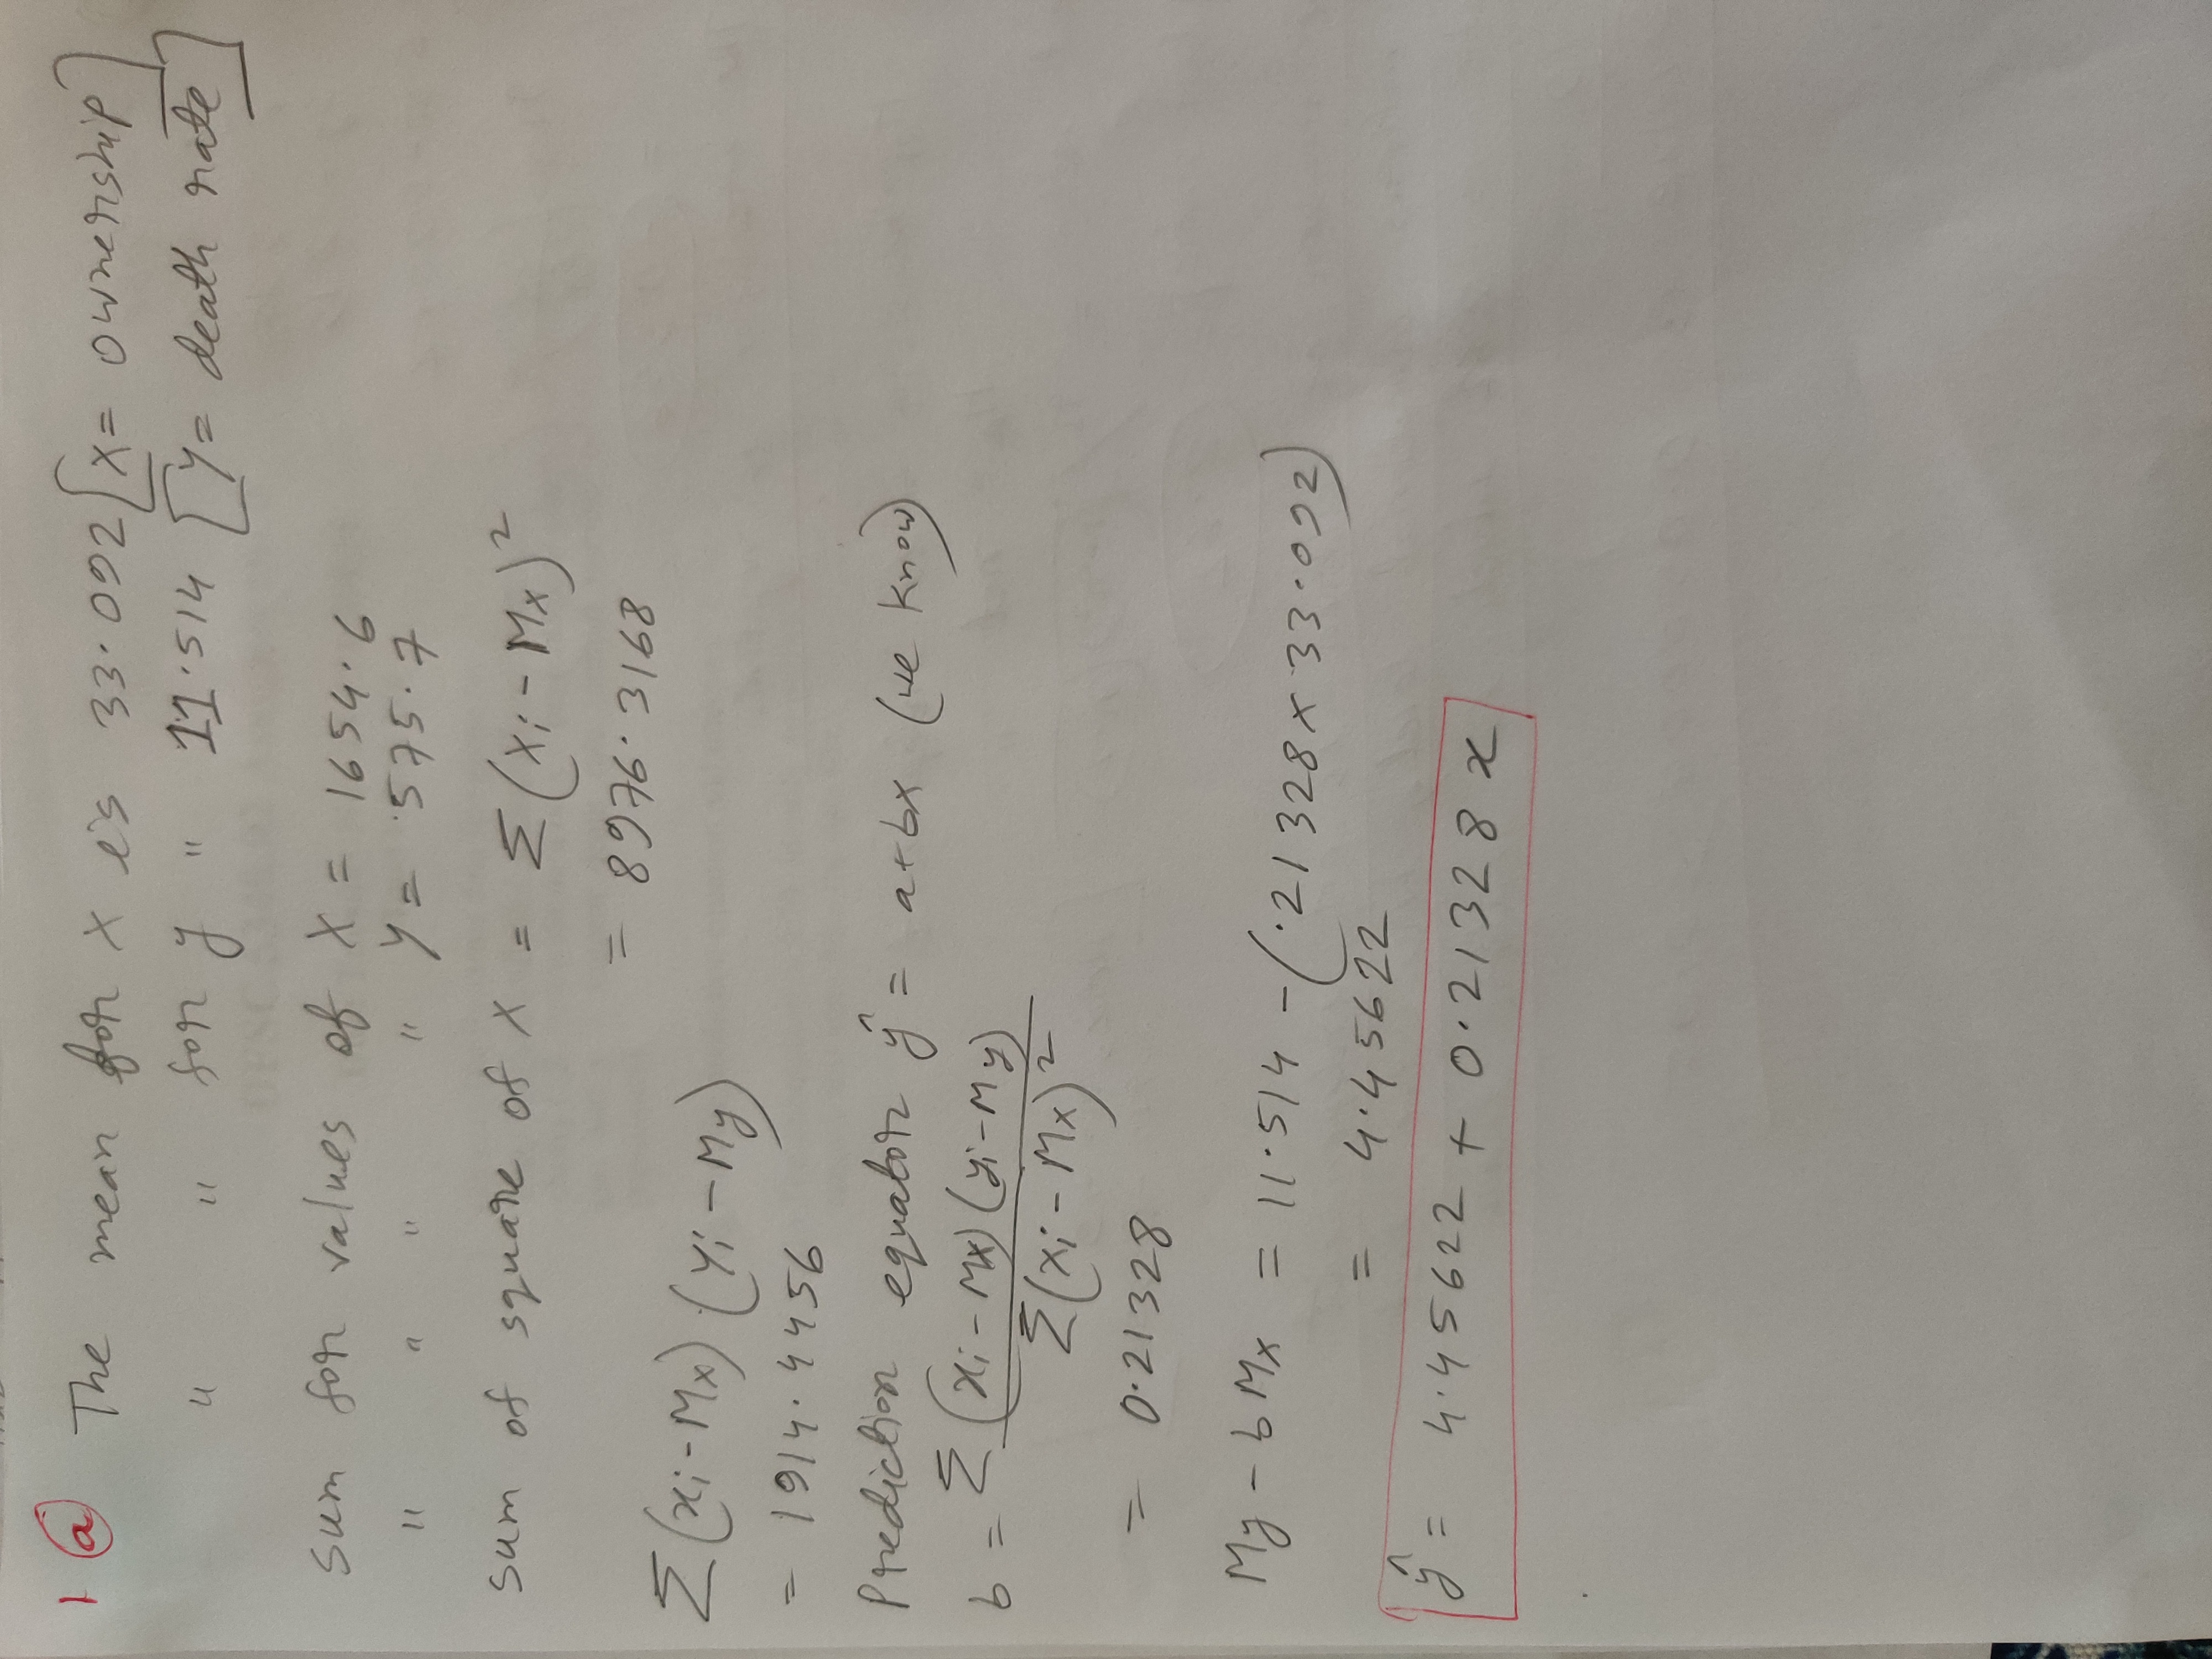 1 (a) The mean for X is 33.092 [X= ownership]
" " for y " 11.514 [Y= death rate]
sum for values of X = 1654.6
" " " " Y = 575.7
sum of square of X = Σ(Xi - Mx)²
= 8976.3168
Σ(xi - Mx) (Yi - My)
= 1914.4456
Prediction ŷ = a+bx (we know)
b = Σ(xi - Mx) (yi - My)
Σ(xi - Mx)²
= 0.21328
My - bMx = 11.514 - (.21328 x 33.092)
= 4.45622
ŷ = 4.45622 + 0.21328 x